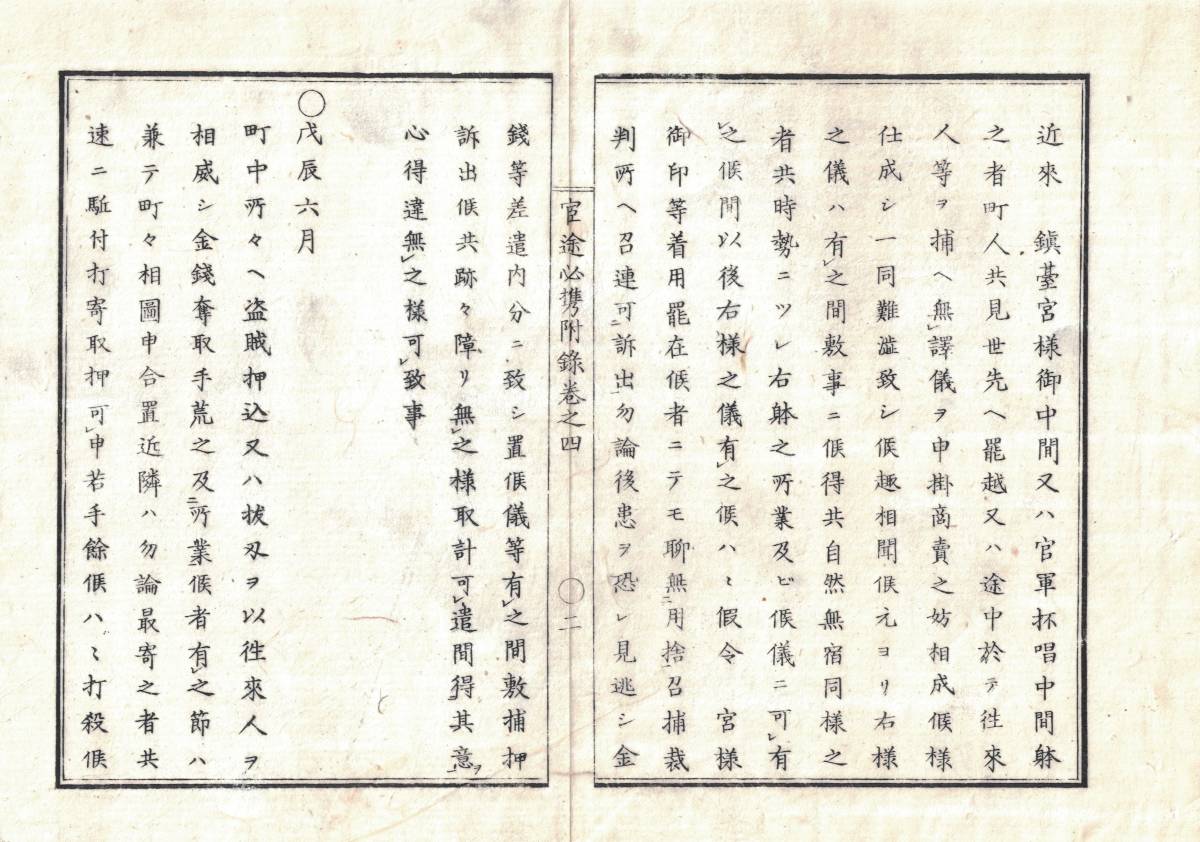 近來　鎭臺宮様御中間又ハ官軍抔唱中間躰
之者町人共見世先ヘ罷越又ハ途中於テ徃來
人等ヲ捕ヘ無レ譯儀ヲ申掛商賣之妨相成候様
仕成シ一同難澁致シ候趣相聞候元ヨリ右様
之儀ハ有レ之間敷事ニ候得共自然無宿同様之
者共時勢ニツレ右躰之所業及ビ候儀ニ可レ有
レ之候間以後右様之儀有レ之候ハヽ假令　宮様
御印等着用罷在候者ニテモ聊無二用捨一召捕裁
判所ヘ召連可二訴出一勿論後患ヲ恐レ見逃シ金
官途必携附錄卷之四
〇二
錢等差遣内分ニ致シ置候儀等有レ之間敷捕押
訴出候共跡々障リ無レ之様取計可レ遣間得二其意一ヲ
心得違無レ之様可レ致事
〇戊辰六月
町中所々ヘ盗賊押込又ハ拔刄ヲ以徃來人ヲ
相威シ金錢奪取手荒之及二所業一候者有レ之節ハ
兼テ町々相圖申合置近隣ハ勿論最寄之者共
速ニ駈付打寄取押可レ申若手餘候ハヽ打殺候